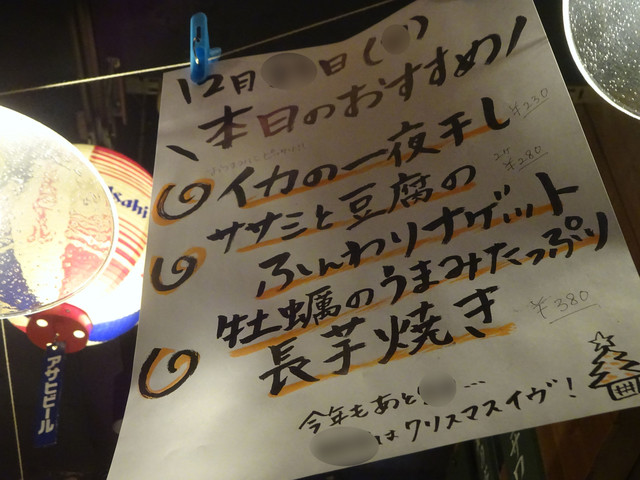 12月 日( )
本日のおすすめ!
イカの一夜干し
¥230
ササミと豆腐の
2ヶ
¥280
ふんわりナゲット
牡蠣のうまみたっぷり
長芋焼き
¥380
今年もあと …
はクリスマスイヴ!
Asahi
アサヒビール